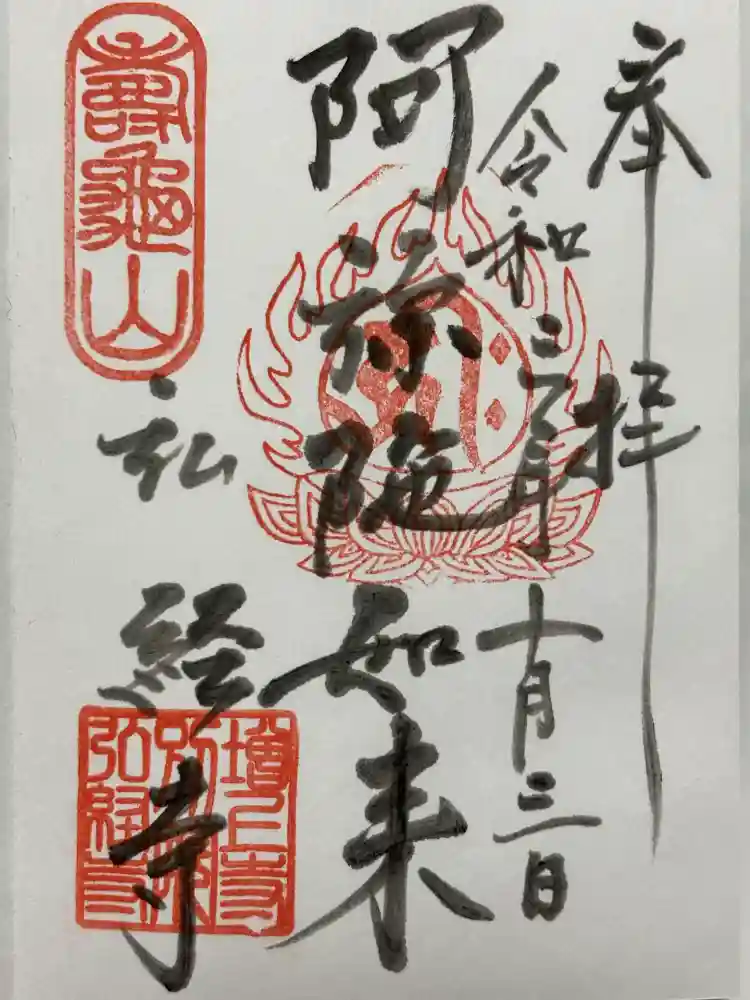 奉拝
令和三年
十月三日
阿弥陀如来
弘経寺
壽龜山
増上寺
別院
弘経寺